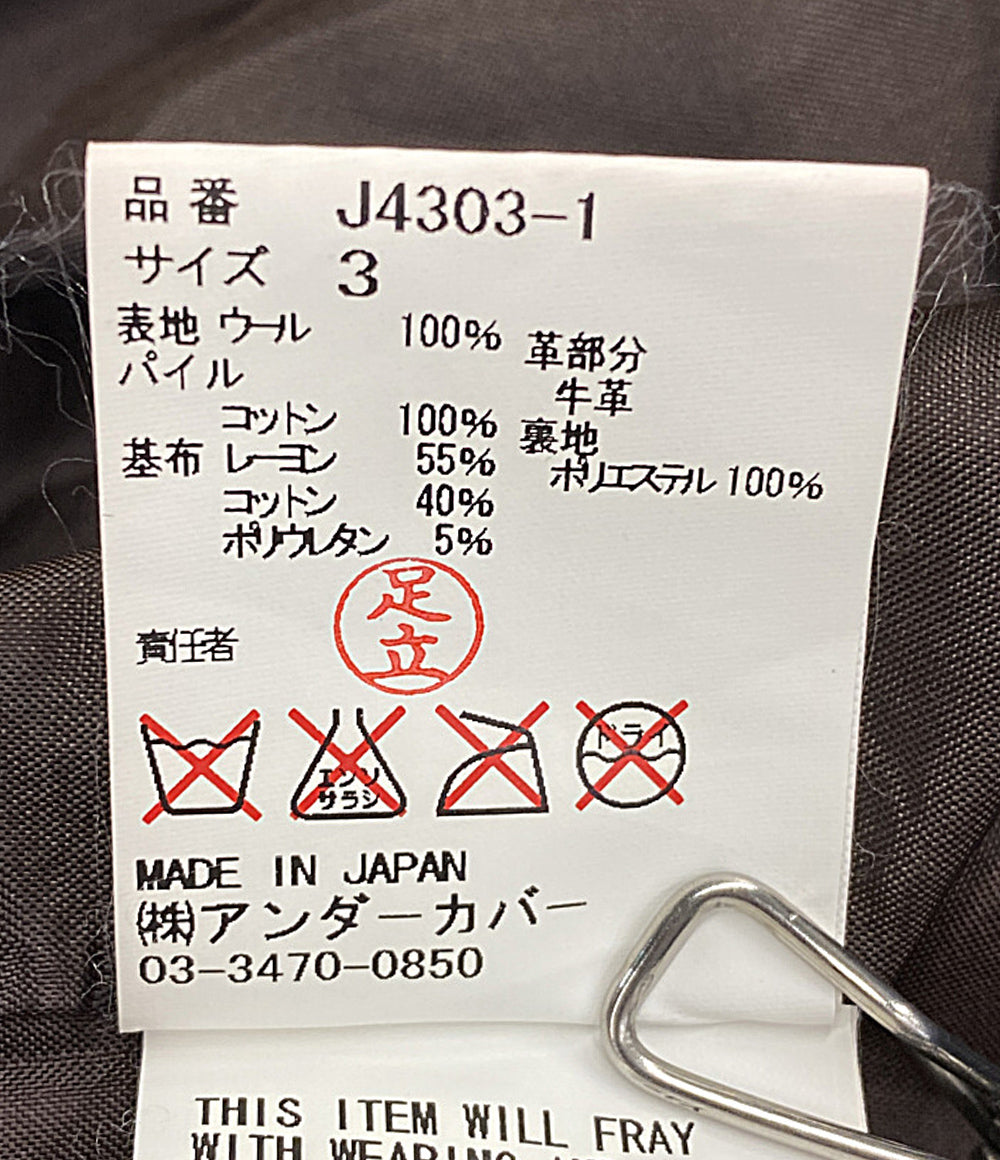 品番 J4303-1
サイズ 3
表地 ウール 100%
パイル
コットン 100%
基布 レーヨン 55%
コットン 40%
ポリウレタン 5%
革部分
牛革
裏地
ポリエステル 100%
足立
責任者
エンソ
サラシ
ドライ
MADE IN JAPAN
(株)アンダーカバー
03-3470-0850
THIS ITEM WILL FRAY
WITH WEARING